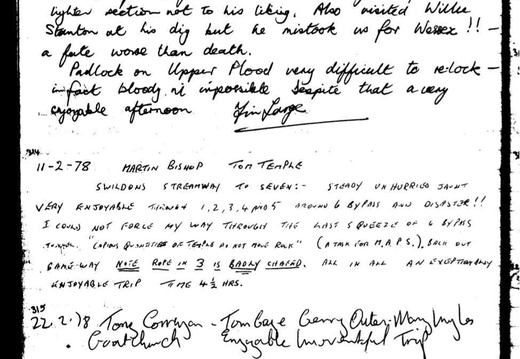 tighter section not to his liking. Also visited Willie
Stanton at his dig but he mistook us for Wessex!! —
a fate worse than death.
Padlock on Upper Flood very difficult to relock —
infact bloody nr impossible despite that a very
enjoyable afternoon Tim Large
11-2-78 MARTIN BISHOP TOM TEMPLE
SWILDONS STREAMWAY TO SEVEN:- STEADY UNHURRIED JAUNT
VERY ENJOYABLE THROUGH 1,2,3,4 AND 5 AROUND 6 BYPASS AND DISASTER!!
I COULD NOT FORCE MY WAY THROUGH THE LAST SQUEEZE OF 6 BYPASS
"COPIOUS QUANTITIES OF TEMPLE DO NOT MOVE ROCK" (A TASK FOR M.A.P.S.), BACK OUT
SAME WAY NOTE ROPE IN 3 IS BADLY CHAFED. ALL IN ALL AN EXCEPTIONALLY
ENJOYABLE TRIP TIME 4½ HRS.
315
22.2.78 Tony Corrigan - Tom Gage Gerry Outer - Mary Ingles
Goatchurch Enjoyable Uneventful Trip